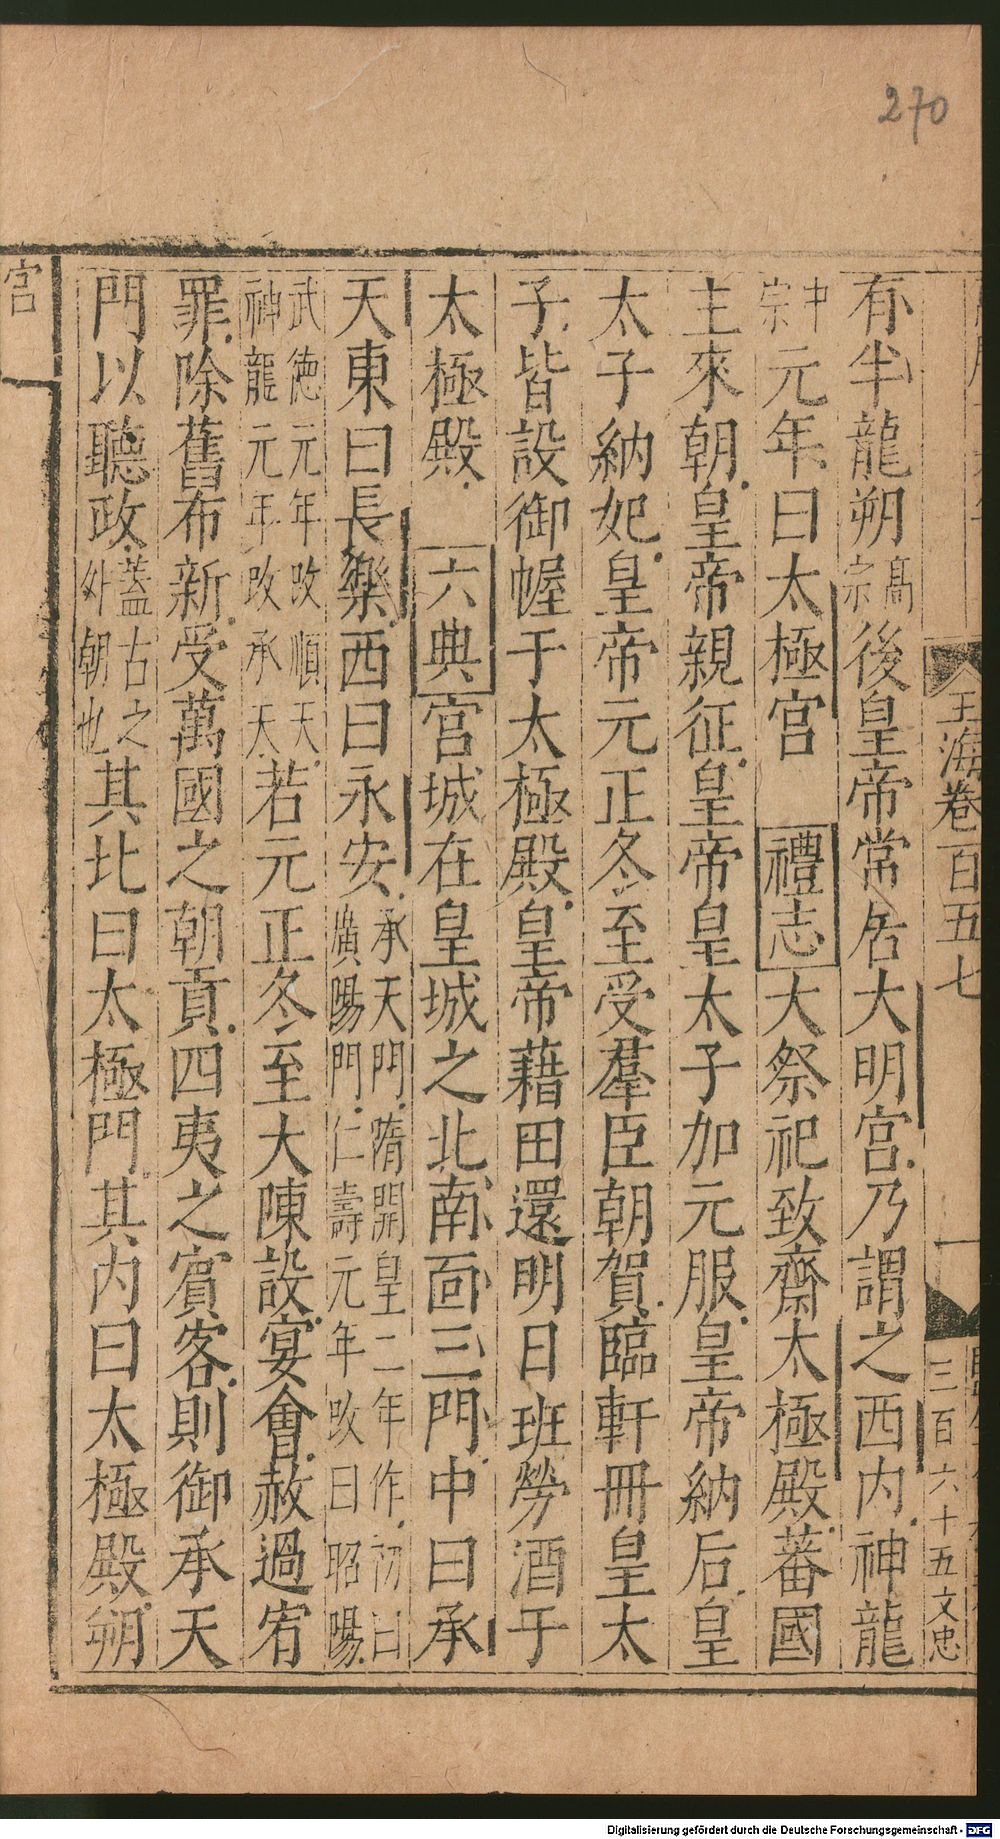 270
玉海卷一百五七
一
三百六十五文忠
有半龍朔高宗後皇帝常居大明宮乃謂之西内神龍
中宗元年曰太極宮 禮志大祭祀致齋太極殿蕃國
主來朝皇帝親征皇帝皇太子加元服皇帝納后皇
太子納妃皇帝元正冬至受羣臣朝賀臨軒冊皇太
子皆設御幄于太極殿皇帝藉田還明日班勞酒于
太極殿 六典宮城在皇城之北南面三門中曰承
天東曰長樂西曰永安承天門隋開皇二年作初曰廣陽門仁壽元年改曰昭陽
武德元年改順天神龍元年改承天若元正冬至大陳設宴會赦過宥
罪除舊布新受萬國之朝貢四夷之賓客則御承天
門以聽政蓋古之外朝也其北曰太極門其内曰太極殿朔
宮
Digitalisierung gefördert durch die Deutsche Forschungsgemeinschaft - DFG